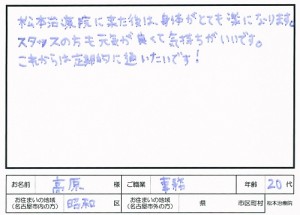 松本治療院に来た後は、身体がとても楽になります。
スタッフの方も元気が良くて気持ちがいいです。
これからは定期的に通いたいです！
お名前 高原 様 ご職業 事務 年齢 20代
お住まいの地域（名古屋市内の方） 昭和 区 お住まいの地域（名古屋市外の方） 県 市区町村 松本治療院